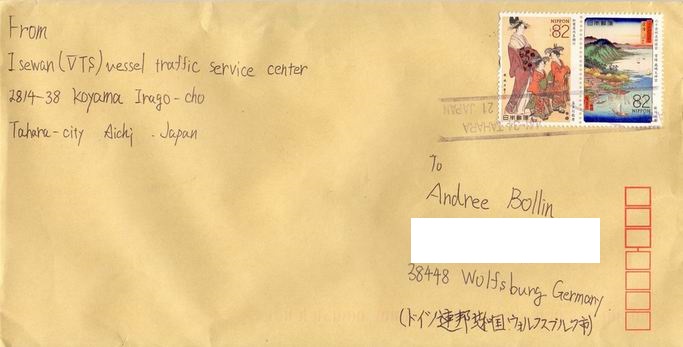 From
Isewan (VTS) vessel traffic service center
2814-38 Koyama Irago-cho
Tahara-city Aichi . Japan
NIPPON 82
日本郵便
日本郵便
82
NIPPON
TAHARA
21 JAPAN
To
Andree Bollin
38448 Wolfsburg Germany
(ドイツ連邦共和国ヴォルフスブルク市)